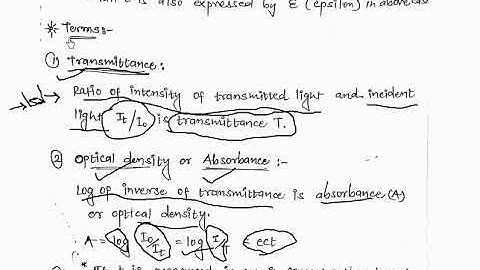 is also expressed by ε (epsilon) in above
* Terms:-
① Transmittance:
→ Ratio of intensity of transmitted light and incident
light It/Io is transmittance T.
② Optical density or Absorbance :-
Log of inverse of transmittance is absorbance (A)
or optical density.
A = log Io/It = log 1/T = εct